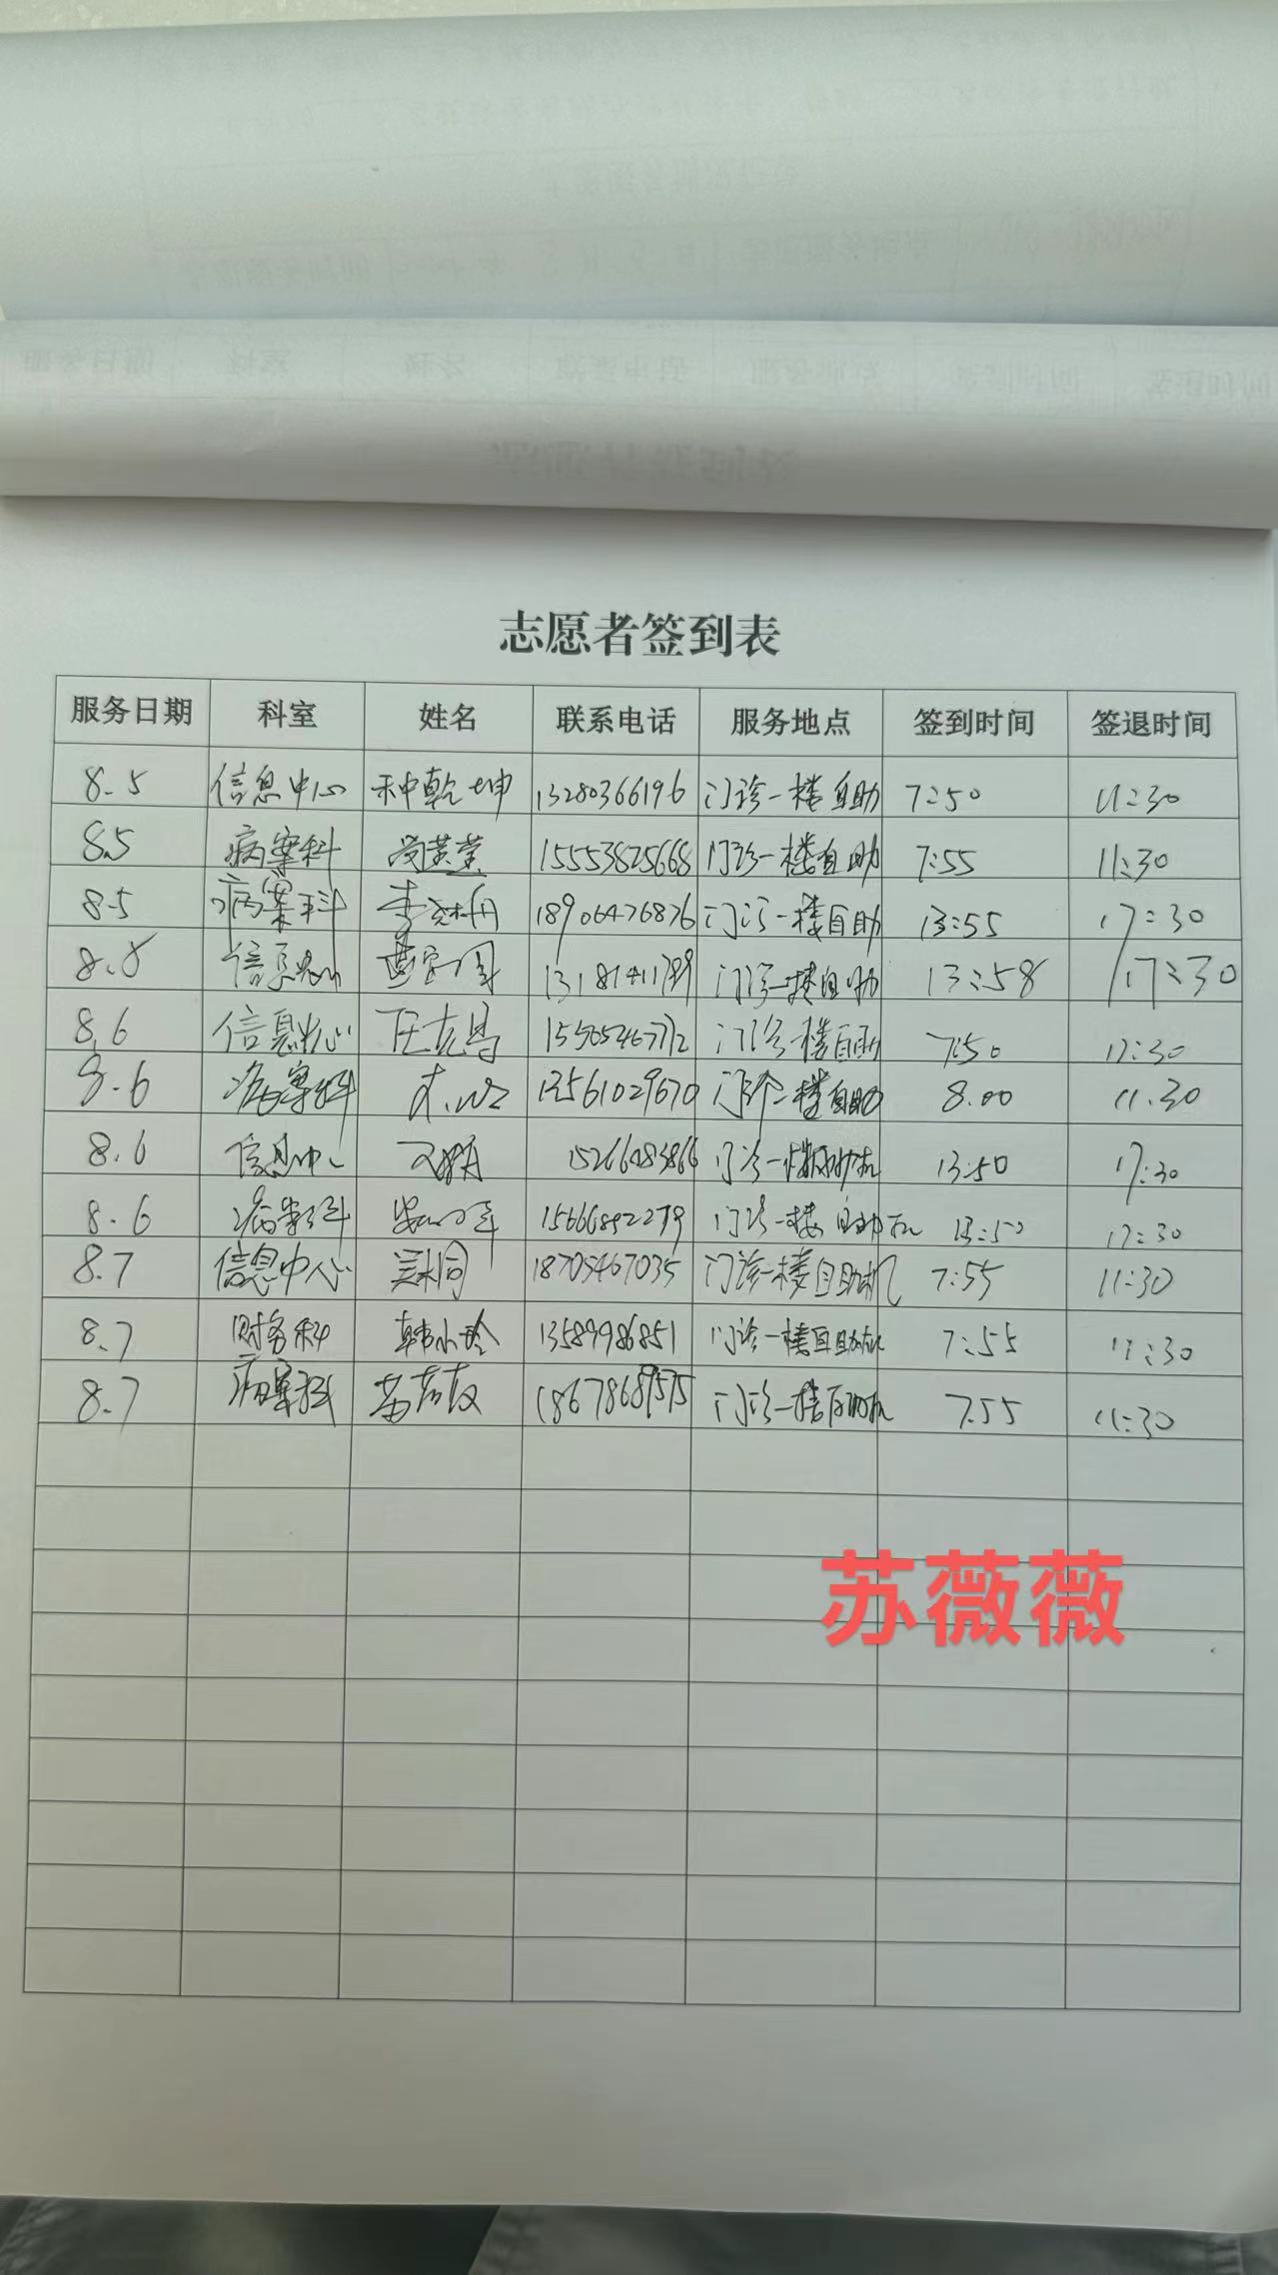 志愿者签到表
服务日期 科室 姓名 联系电话 服务地点 签到时间 签退时间
8.5 信息中心 种乾坤 13280366196 门诊一楼自助 7:50 11:30
8.5 病案科 15553825668 门诊一楼自助 7:55 11:30
8.5 病案科 18906476876 门诊一楼自助 13:55 17:30
8.5 信息中心 门诊一楼自助 13:58 17:30
8.6 信息中心 门诊一楼自助 7:50
8.6 病案科 13561029670 门诊一楼自助 8.00 11.30
8.6 信息中心 门诊一楼 13:50 17:30
8.6 病案科 门诊一楼自助机 13:50 17:30
8.7 信息中心 18705467035 门诊一楼自助机 7:55 11:30
8.7 财务科 韩小玲 13589986851 门诊一楼自助机 7:55 11:30
8.7 病案科 18678689575 门诊一楼自助机 7.55 11:30
苏薇薇